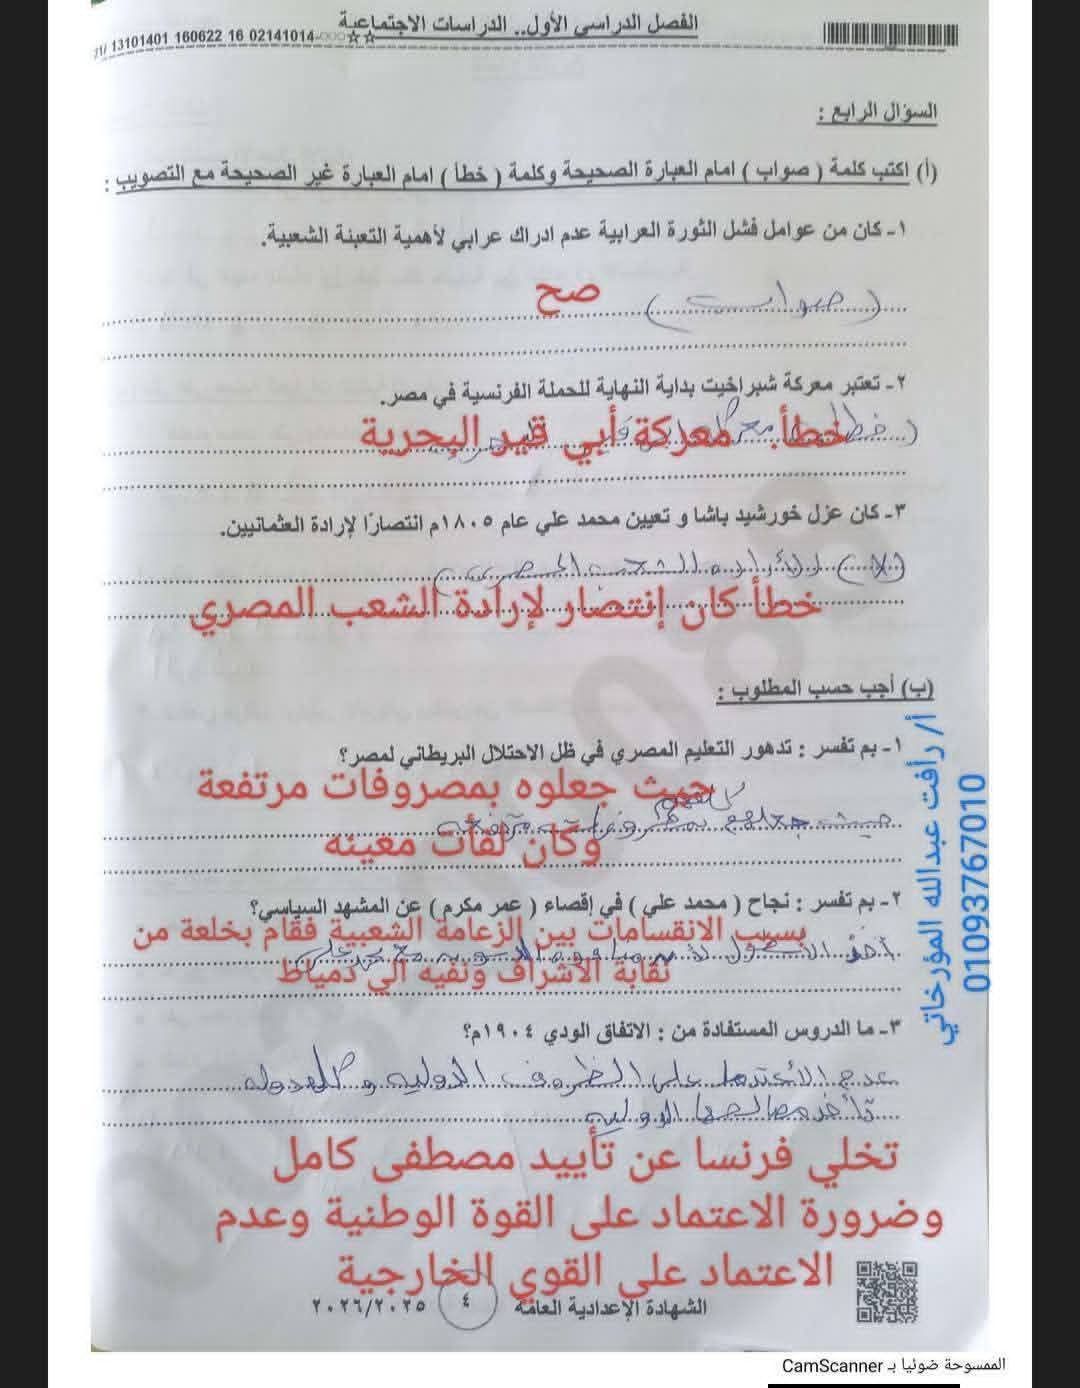 الفصل الدراسى الأول.. الدراسات الاجتماعية
13101401 160622 16 02141014
السؤال الرابع :
(أ) اكتب كلمة ( صواب ) امام العبارة الصحيحة وكلمة ( خطأ ) امام العبارة غير الصحيحة مع التصويب :
١- كان من عوامل فشل الثورة العرابية عدم ادراك عرابي لأهمية التعبئة الشعبية.
(صواب)
صح
٢- تعتبر معركة شبراخيت بداية النهاية للحملة الفرنسية في مصر.
خطأ. معركة أبي قير البحرية
٣- كان عزل خورشيد باشا و تعيين محمد علي عام ١٨٠٥م انتصارًا لإرادة العثمانيين.
خطأ كان إنتصار لإرادة الشعب المصري
(ب) أجب حسب المطلوب :
١- بم تفسر : تدهور التعليم المصري في ظل الاحتلال البريطاني لمصر؟
حيث جعلوه بمصروفات مرتفعة
حيث جعلوهم بمصروفات مرتفعه
وكان لفأت معينه
٢- بم تفسر : نجاح ( محمد علي ) في إقصاء ( عمر مكرم ) عن المشهد السياسي؟
بسبب الانقسامات بين الزعامة الشعبية فقام بخلعة من
نقابة الأشراف ونفيه الي دمياط
٣- ما الدروس المستفادة من : الاتفاق الودي ١٩٠٤م؟
على الظروف الدوليه
مصالحها الدوليه
تخلي فرنسا عن تأييد مصطفى كامل
وضرورة الاعتماد على القوة الوطنية وعدم
الاعتماد على القوي الخارجية
الشهادة الإعدادية العامة
٤
٢٠٢٦/٢٠٢٥
أ/ رأفت عبدالله المؤرخاتي
01093767010
الممسوحة ضوئيا بـ CamScanner